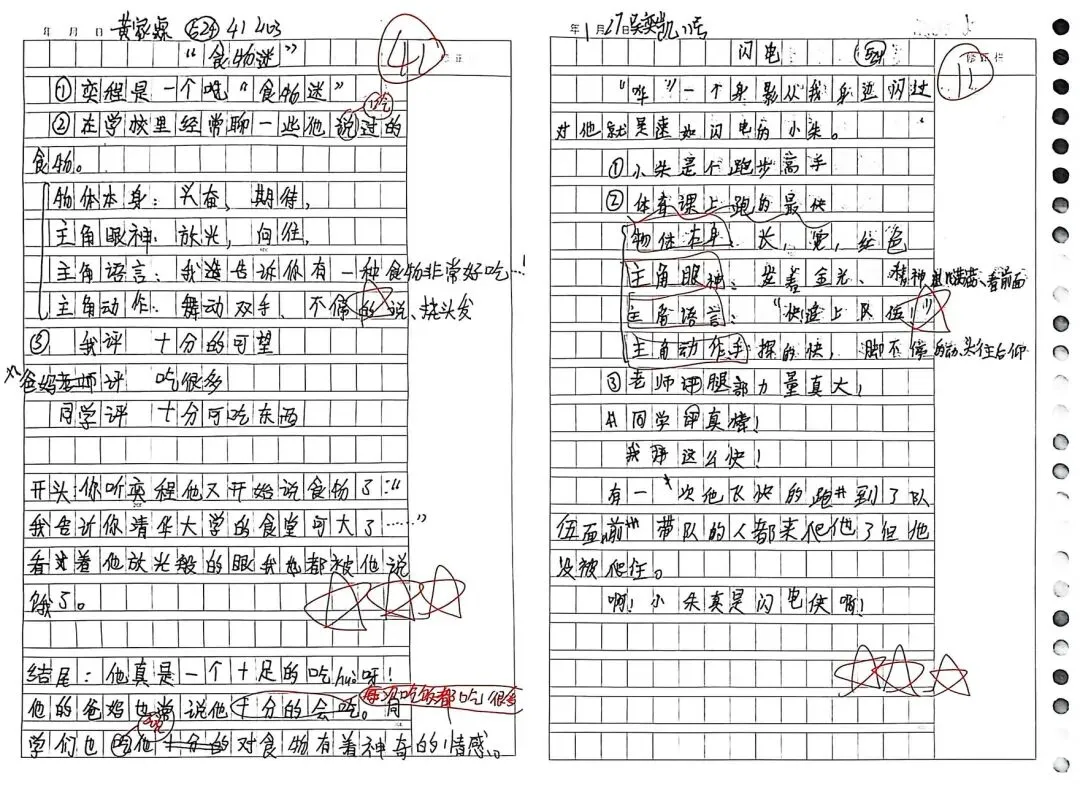 年 月 日 黄家 524 41 4.03
41
“食物迷”
①奕程是一个吃“食物迷”
②在学校里经常聊一些他说过的
吃
食物。
物体本身：兴奋，期待，
主角眼神：放光，向往，
主角语言：我造告诉你有一种食物非常好吃…！
主角动作：舞动双手、不停的说、挠头发
③ 我评 十分的可望
爸妈老师评 吃很多
同学评 十分可吃东西
开头：你听奕程他又开始说食物了：“
我告诉你清华大学的食堂可大了……”
看着他放光般的眼我都被他说
饿了。
结尾：他真是一个十足的吃huò呀！
每次吃的都吃很多
他的爸妈也常说他十分的会吃。同
说
学们也吃他十分的对食物有着神奇的情感。
年1月27日吴奕凯11号
闪电 524
11
“哗”一个身影从我身边闪过
对他就是速如闪电的小朱。
①小朱是个跑步高手
②体育课上跑的最快
物体本身：长，宽，红色
主角眼神：发着金光、精神满满、看前面
主角语言：“快速上队伍！”
主角动作手摆的快，脚不停的动、头往后仰
③老师评腿部力量真大！
同学评真棒！
我评这么快！
有一次他飞快的跑到了队
伍面前带队的人都来爬他了但他
没被爬住。
啊！小朱真是闪电侠啊！